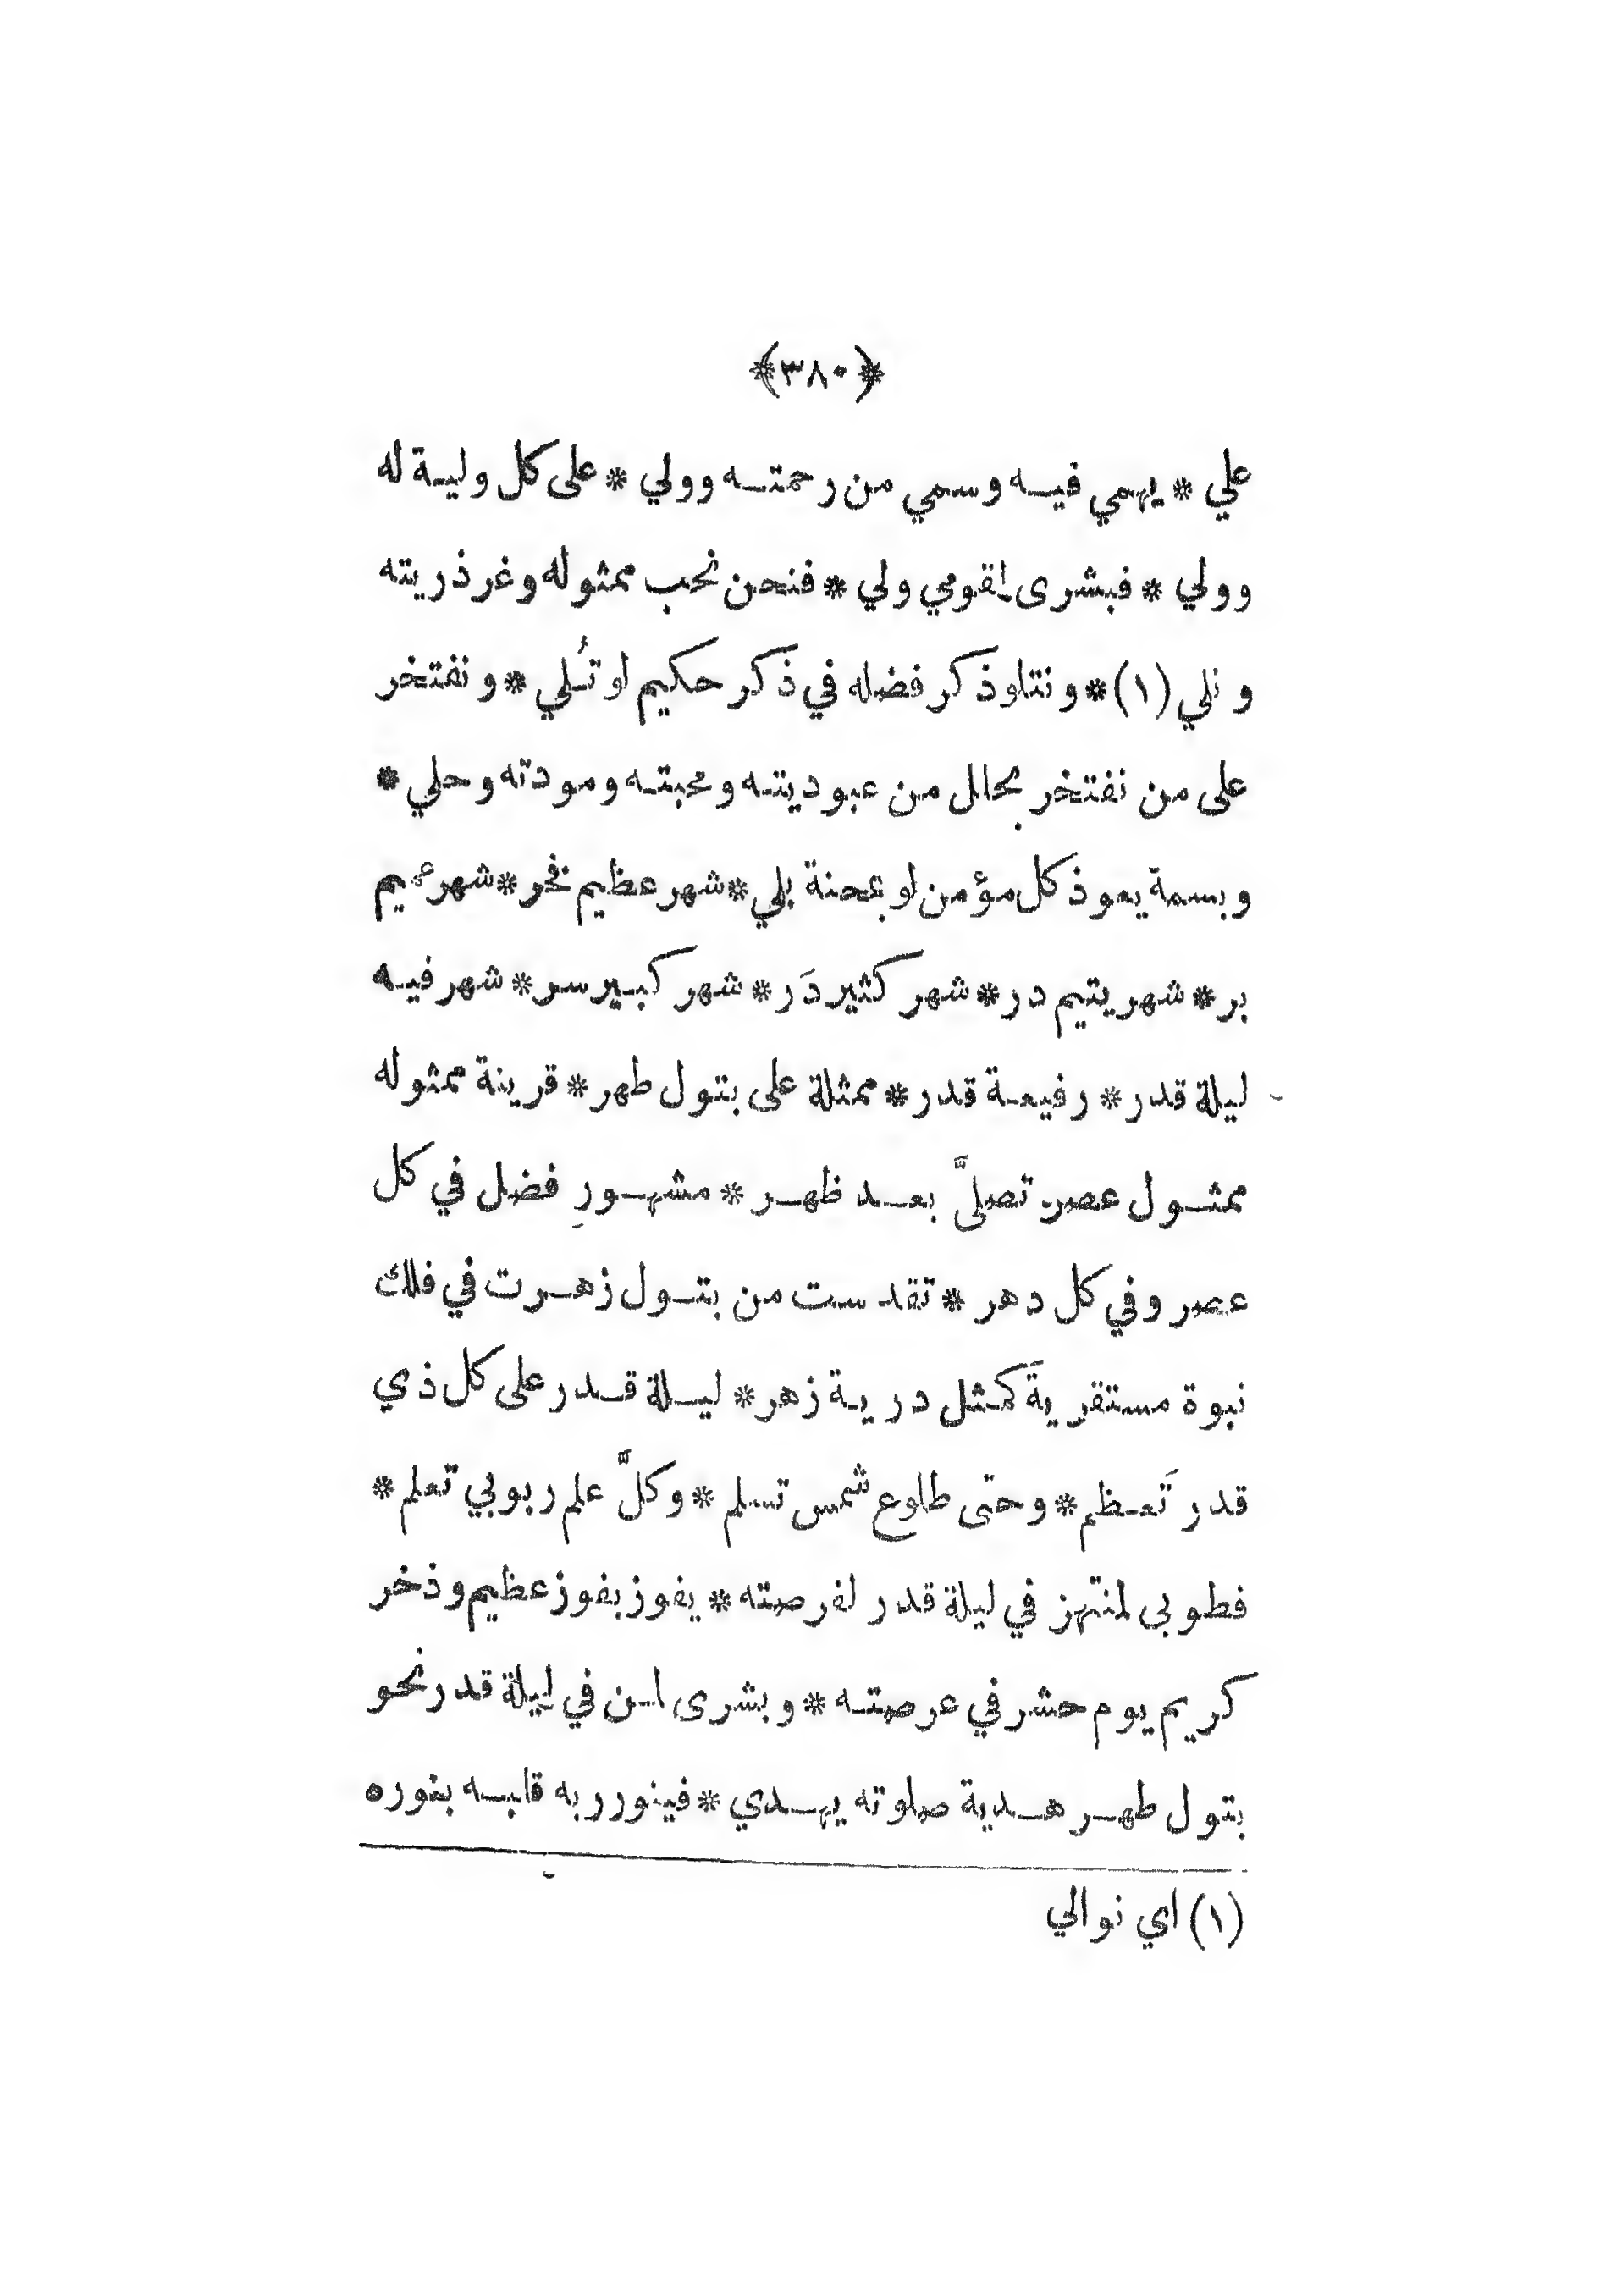 ﴿٣٨٠﴾
علي * يهمي فيه وسمي من رحمته وولي * على كل ولية له
وولي * فبشرى لقومي ولي * فنحن نحب ممثوله وغر ذريته
و نلي (١) * ونتلو ذكر فضله في ذكر حكيم لو تُلي * ونفتخر
على من نفتخر بحلل من عبوديته ومحبته ومودته وحلي *
وبسمة يعوذ كل مؤمن لو بمحنة بلي * شهر عظيم فخر * شهر عميم
بر * شهر يتيم در * شهر كثير دَر * شهر كبير سر * شهر فيه
ليلة قدر * رفيعة قدر * ممثلة على بتول طهر * قرينة ممثوله
ممثول عصر تصلىَّ بعد ظهر * مشهورِ فضل في كل
عصر وفي كل دهر * تقدست من بتول زهرت في فلك
نبوة مستقرية كمثل درية زهر * ليلة قدر على كل ذي
قدر تَعظم * وحتى طلوع شمس تسلم * وكلَّ علم ربوبي تعلم *
فطوبى لمنتهز في ليلة قدر لفرصته * يفوز بفوز عظيم وذخر
كريم يوم حشر في عرصته * وبشرى لمن في ليلة قدر نحو
بتول طهر هدية صلوته يهدي * فينور ربه قلبه بنوره
(١) اي نوالي